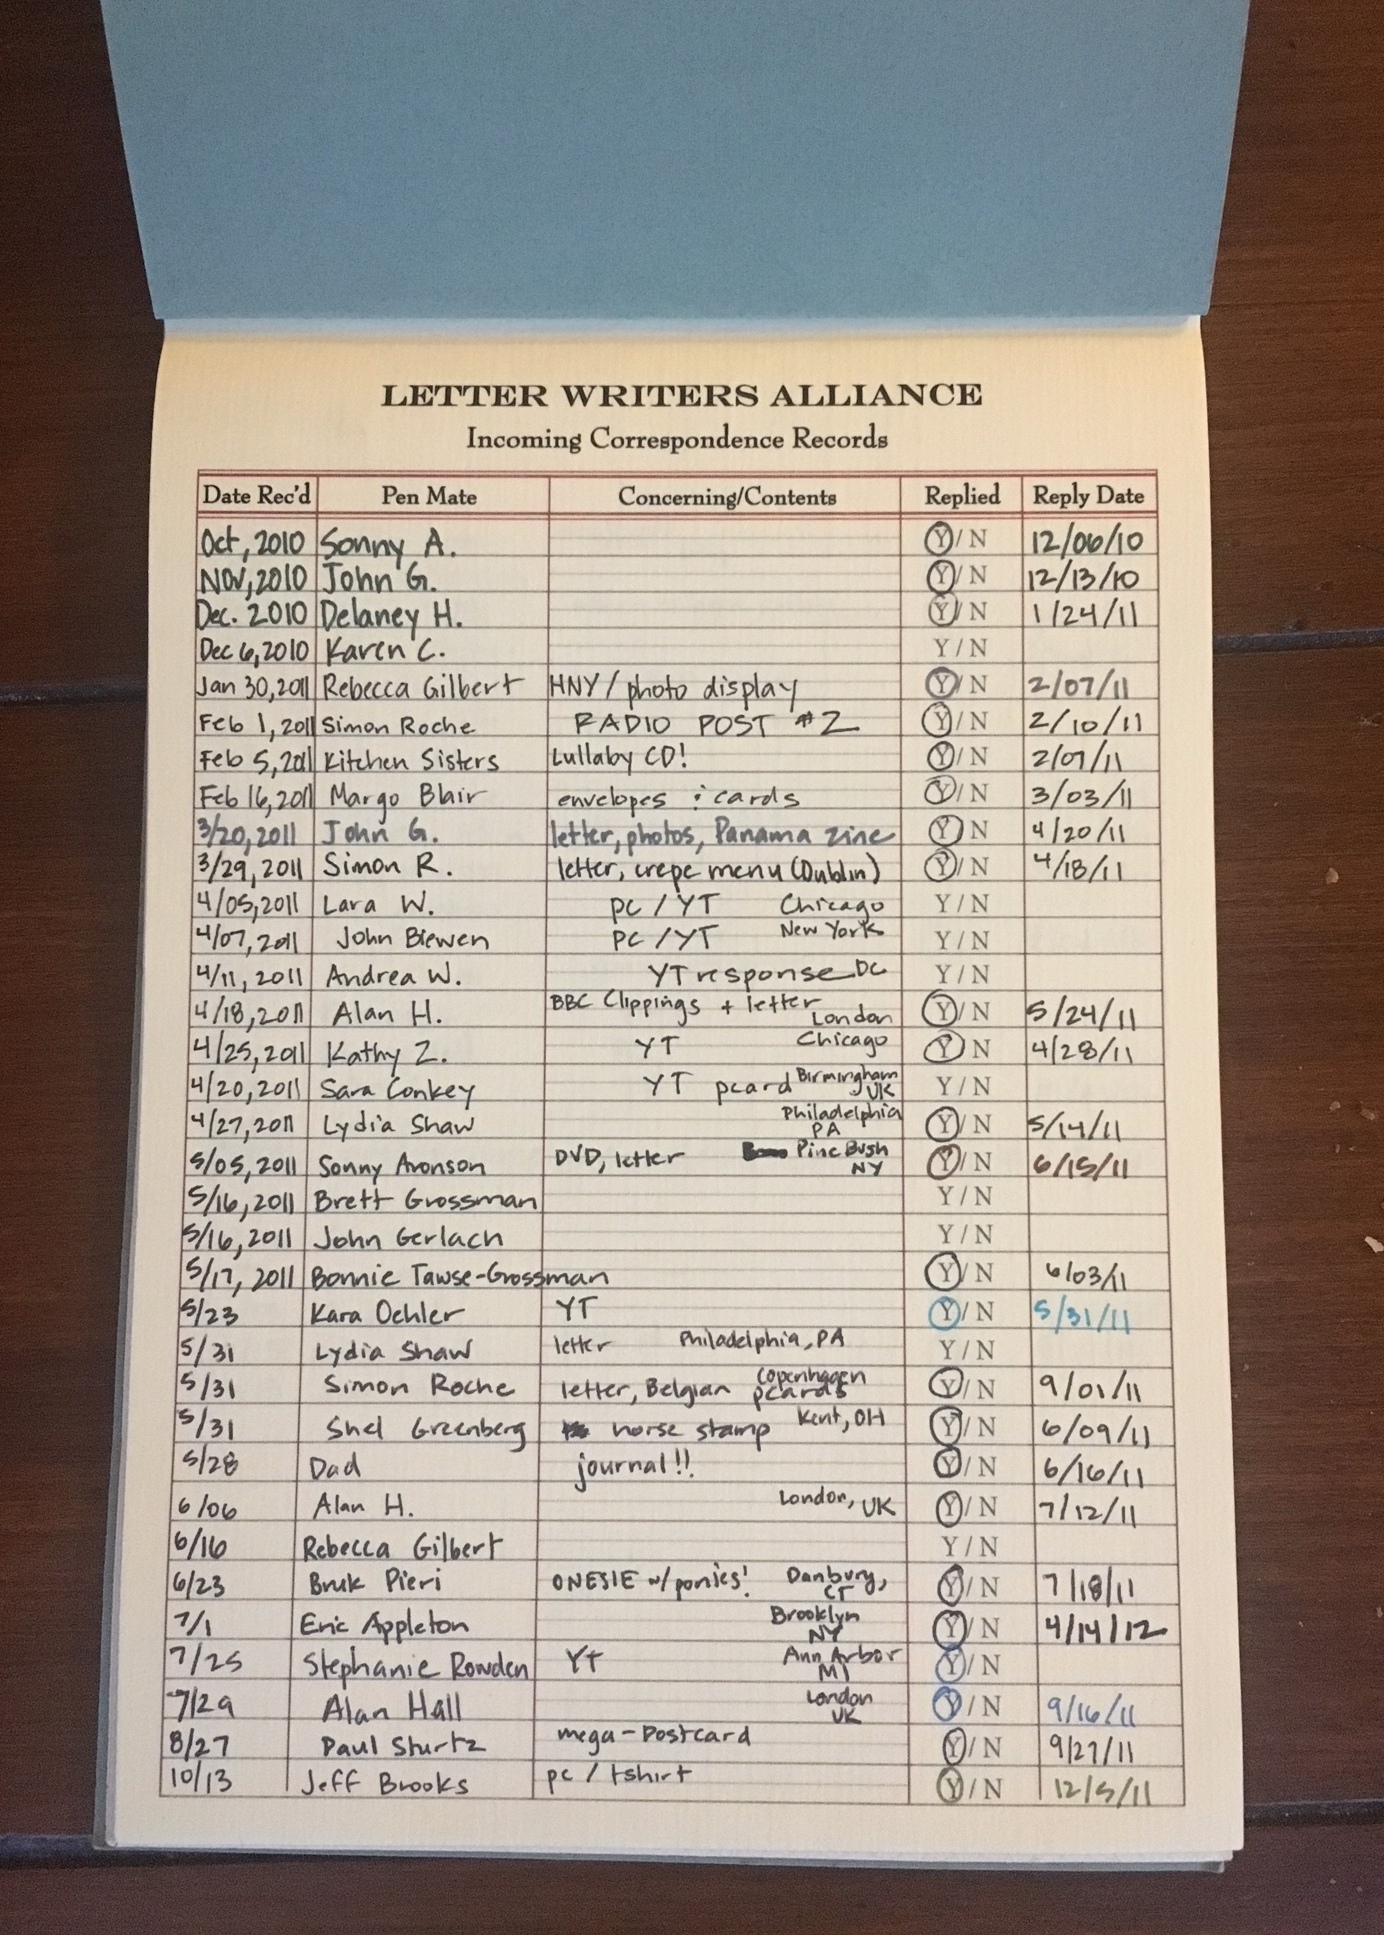 LETTER WRITERS ALLIANCE
Incoming Correspondence Records
Date Rec'd Pen Mate Concerning/Contents Replied Reply Date
Oct, 2010 Sonny A. Y/N 12/06/10
Nov, 2010 John G. Y/N 12/13/10
Dec. 2010 Delaney H. Y/N 1/24/11
Dec 6, 2010 Karen C. Y/N
Jan 30, 2011 Rebecca Gilbert HNY / photo display Y/N 2/07/11
Feb 1, 2011 Simon Roche RADIO POST #2 Y/N 2/10/11
Feb 5, 2011 Kitchen Sisters Lullaby CD! Y/N 2/07/11
Feb 16, 2011 Margo Blair envelopes & cards Y/N 3/03/11
3/20, 2011 John G. letter, photos, Panama zine Y/N 4/20/11
3/29, 2011 Simon R. letter, crepe menu (Dublin) Y/N 4/18/11
4/05, 2011 Lara W. pc / YT Chicago Y/N
4/07, 2011 John Biewen pc / YT New York Y/N
4/11, 2011 Andrea W. YT response DC Y/N
4/18, 2011 Alan H. BBC Clippings + letter London Y/N 5/24/11
4/25, 2011 Kathy Z. YT Chicago Y/N 4/28/11
4/20, 2011 Sara Conkey YT pcard Birmingham UK Y/N
4/27, 2011 Lydia Shaw Philadelphia PA Y/N 5/14/11
5/05, 2011 Sonny Aronson DVD, letter Pine Bush NY Y/N 6/15/11
5/16, 2011 Brett Grossman Y/N
5/16, 2011 John Gerlach Y/N
5/17, 2011 Bonnie Tawse-Grossman Y/N 6/03/11
5/23 Kara Oehler YT Y/N 5/31/11
5/31 Lydia Shaw letter Philadelphia, PA Y/N
5/31 Simon Roche letter, Belgian pcards Copenhagen Y/N 9/01/11
5/31 Shel Greenberg horse stamp Kent, OH Y/N 6/09/11
5/28 Dad journal!! Y/N 6/16/11
6/06 Alan H. London, UK Y/N 7/12/11
6/16 Rebecca Gilbert Y/N
6/23 Bruk Pieri ONESIE w/ponies! Danbury, CT Y/N 7/18/11
7/1 Eric Appleton Brooklyn NY Y/N 4/14/12
7/25 Stephanie Rowden YT Ann Arbor MI Y/N
7/29 Alan Hall London UK Y/N 9/16/11
8/27 Paul Sturtz mega-postcard Y/N 9/27/11
10/13 Jeff Brooks pc / tshirt Y/N 12/5/11